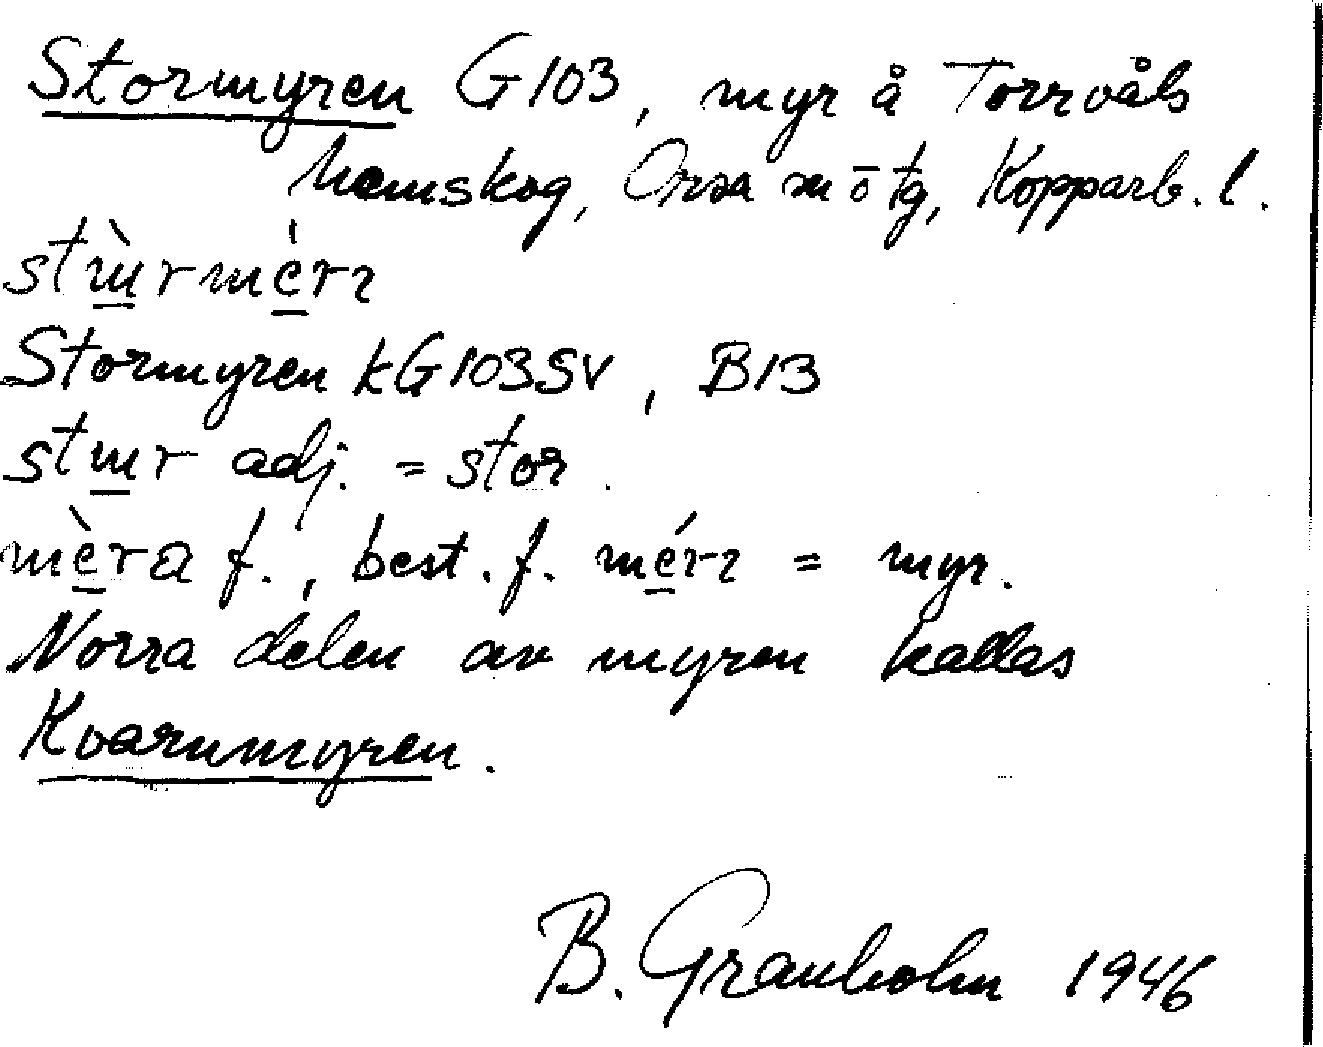 Stormyren G103, myr å Torrvåls
hemskog, Orsa sn o tg, Kopparb. l.
stɯ̲̀rme̲̍rɪ
Stormyren kG103SV, B13
stɯ̲r adj. = stor.
mè̲ra f., best. f. mé̲rɪ = myr.
Norra delen av myren kallas
Kvarnmyren.
B. Granholm 1946